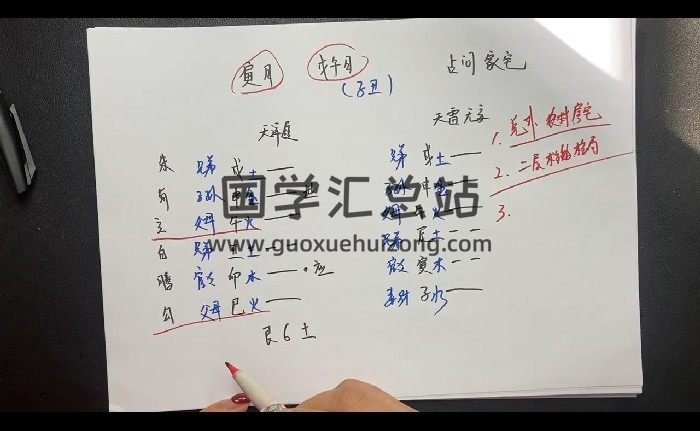 寅月 戊午日 占问家宅
(子丑)
天泽履 天雷无妄
朱 兄弟 戌土 兄弟 戌土
有 子孙 申金 子孙 申金
玄 父母 午火 父母 午火
白 兄弟 丑土 兄弟 辰土
腾 官 卯木 应 官 寅木
勾 父母 巳火 妻财 子水
艮6土
1.
2.
3.
国学汇总站
www.guoxuehuizong.com